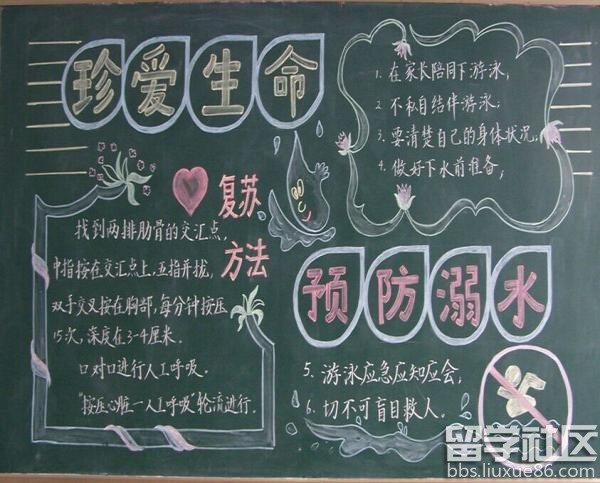 珍爱生命
1. 在家长陪同下游泳,
2. 不私自结伴游泳;
3. 要清楚自己的身体状况;
4. 做好下水前准备,
复苏
方法
找到两排肋骨的交汇点,
中指按在交汇点上,五指并拢,
双手交叉按在胸部,每分钟按压
15次,深度在3-4厘米.
口对口进行人工呼吸.
"按压心脏—人工呼吸"轮流进行.
预防溺水
5. 游泳应急应知应会,
6. 切不可盲目救人.
留学社区
bbs.liuxue86.com